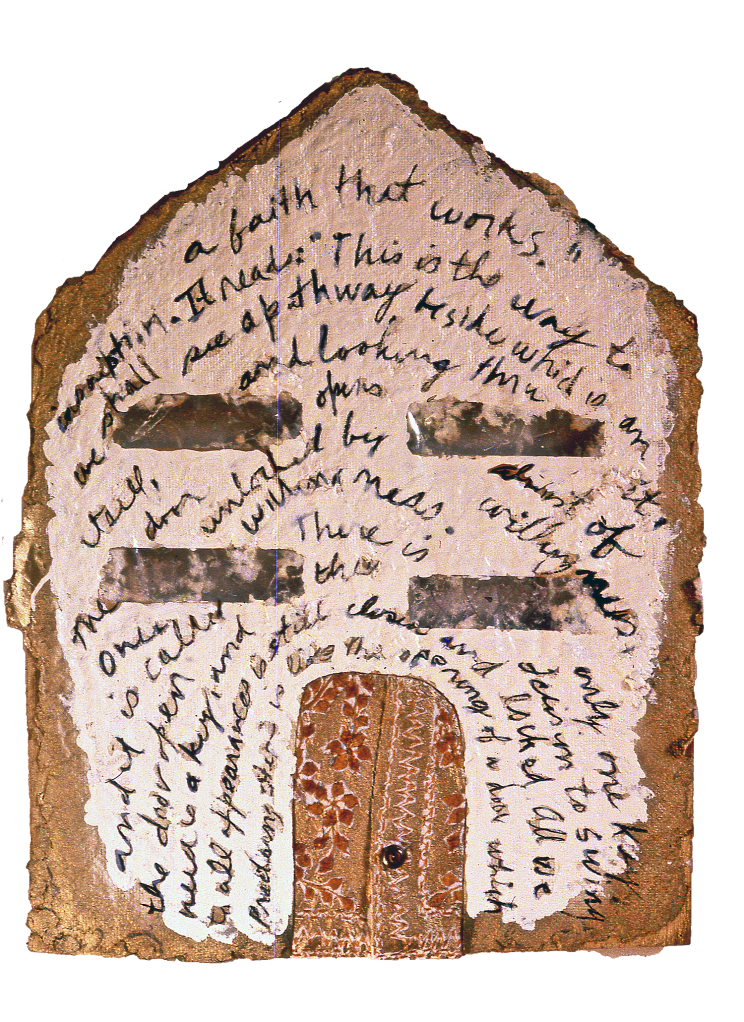 Practicing Step 3 is like the opening of a door which
to all appearances is still closed and locked. All we
need is a key, and the decision to swing
the door open. There is only one key,
and it is called willingness.
Once unlocked by willingness.
The door opens almost of
itself, and looking thru it,
we shall see a pathway beside which is an
inscription. It reads: "This is the way to
a faith that works."